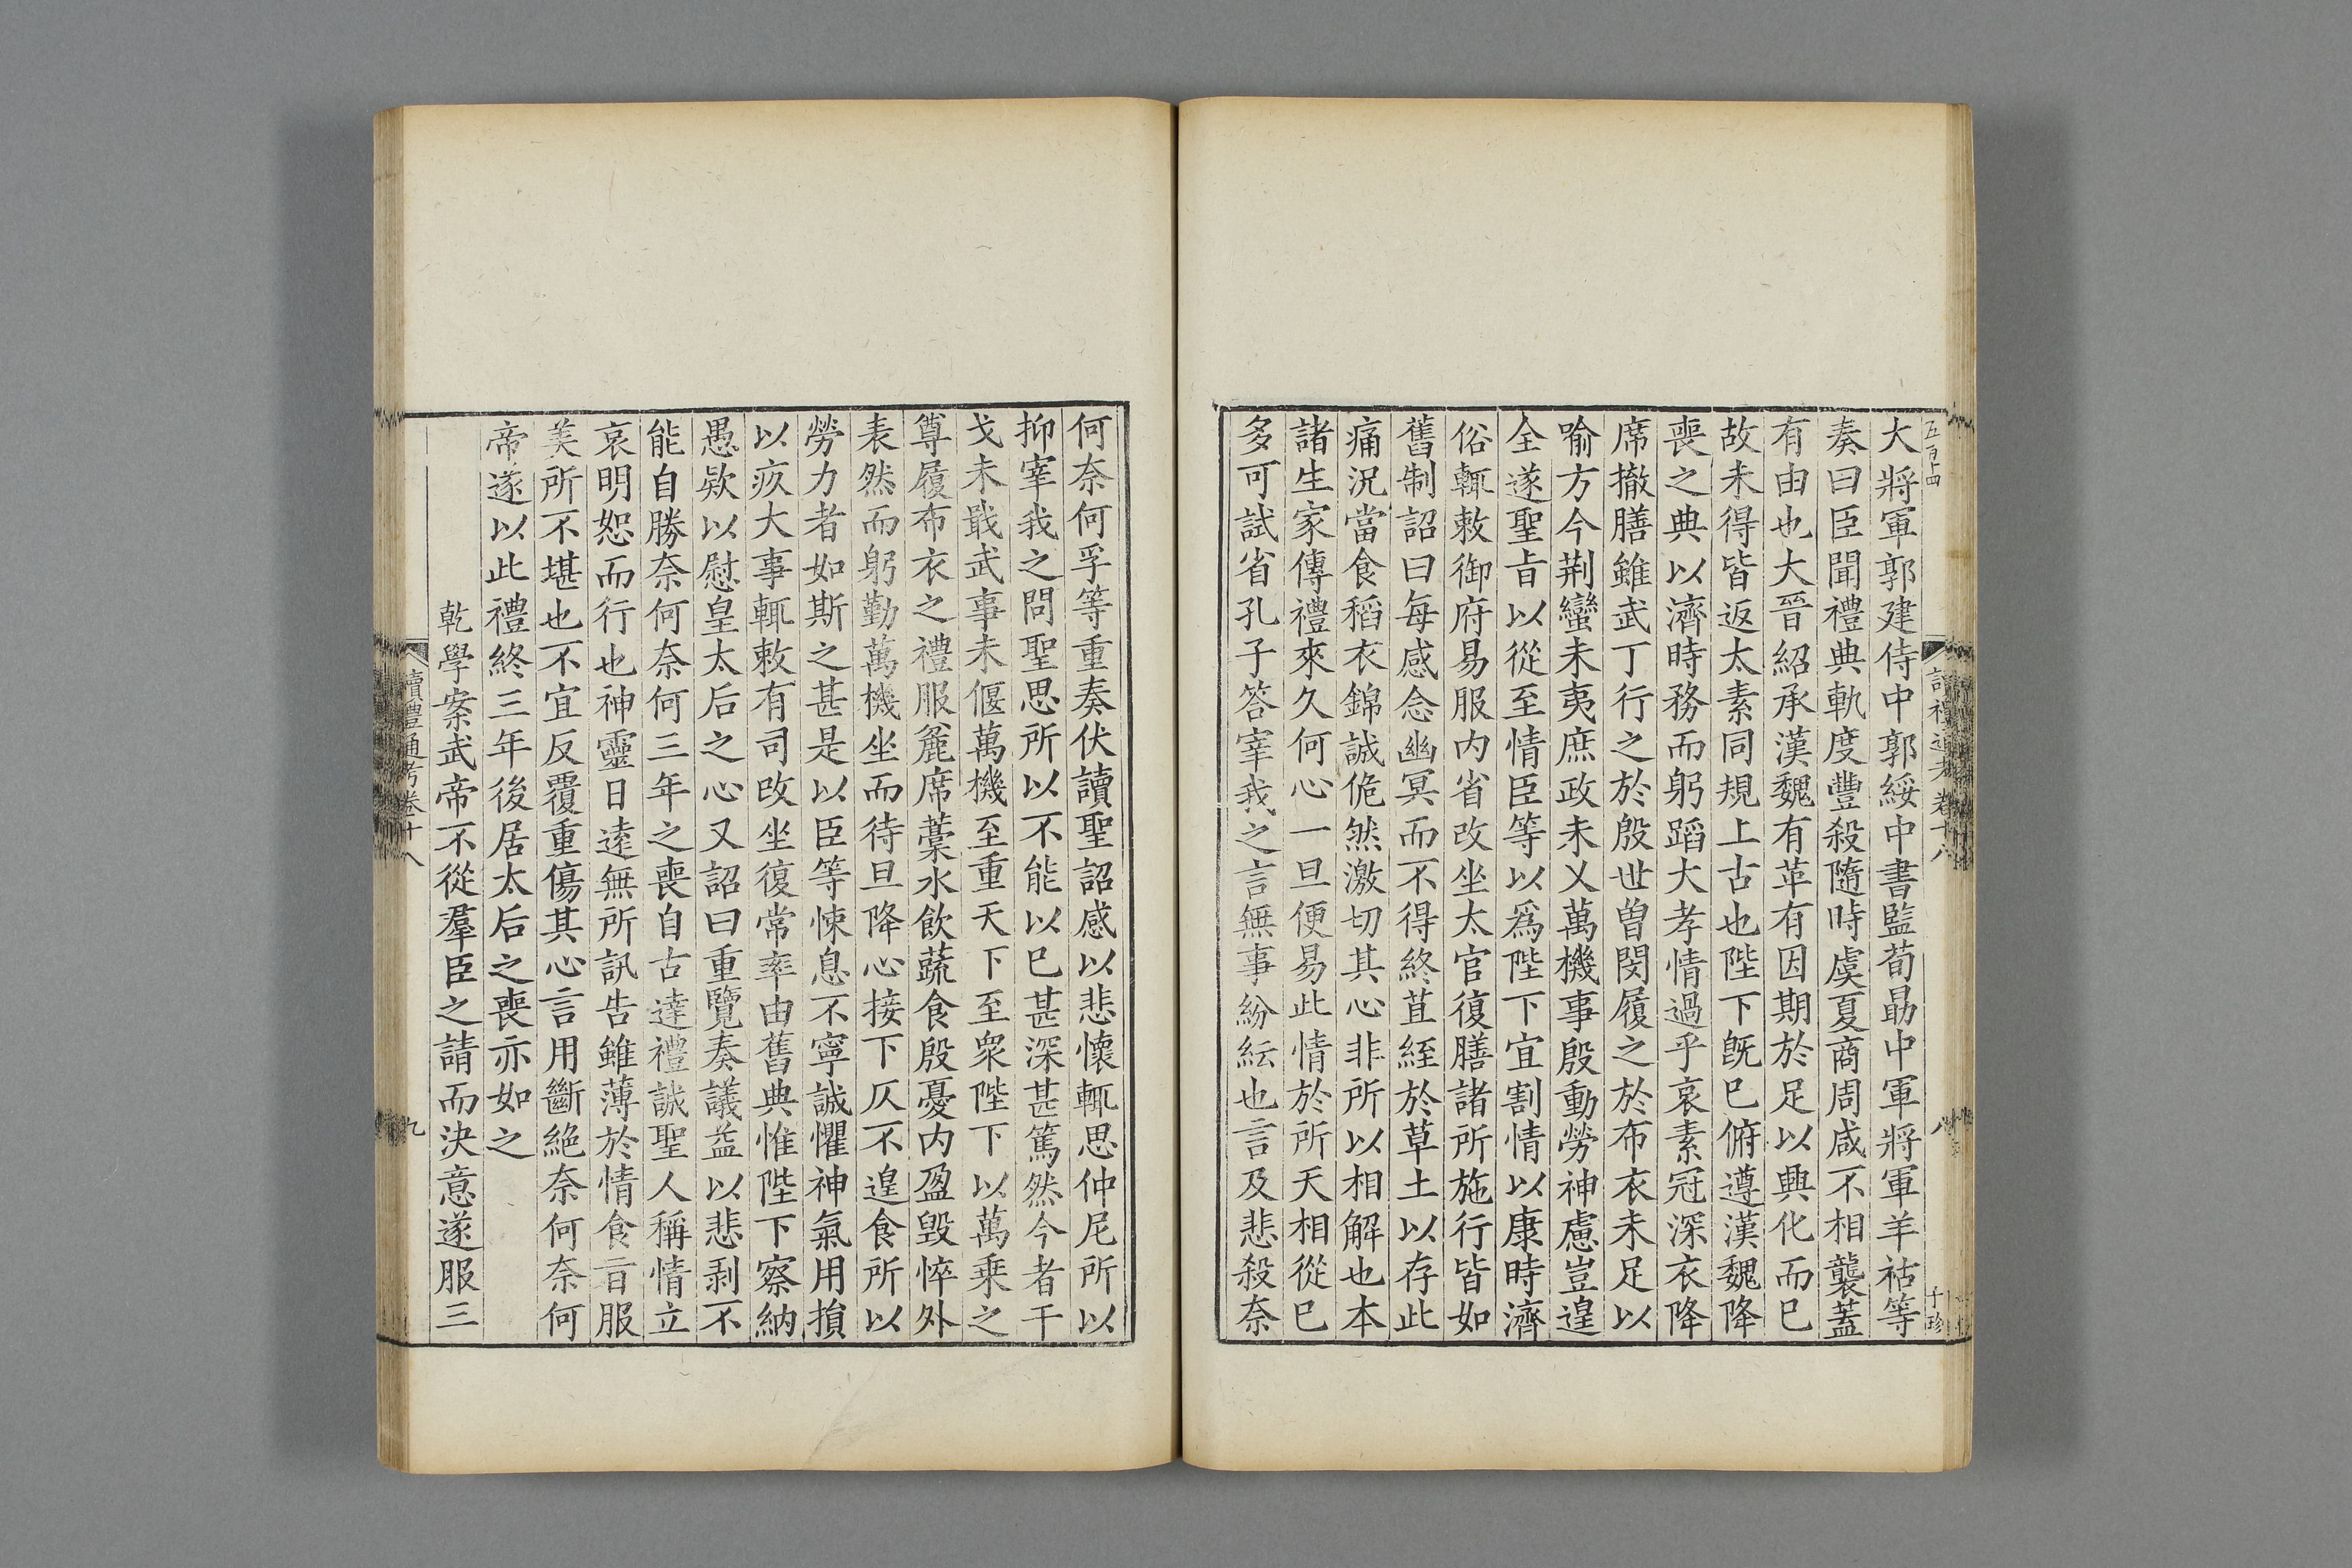 大將軍郭建侍中郭綏中書監荀勗中軍將軍羊祜等
奏曰臣聞禮典軌度豐殺隨時虞夏商周咸不相襲蓋
有由也大晉紹承漢魏有革有因期於足以興化而已
故未得皆返太素同規上古也陛下旣已俯遵漢魏降
喪之典以濟時務而躬蹈大孝情過乎哀素冠深衣降
席撤膳雖武丁行之於殷世曾閔履之於布衣未足以
喻方今荆蠻未夷庶政未乂萬機事殷動勞神慮豈遑
全遂聖旨以從至情臣等以爲陛下宜割情以康時濟
俗輒敕御府易服内省改坐太官復膳諸所施行皆如
舊制詔曰每感念幽冥而不得終苴絰於草土以存此
痛況當食稻衣錦誠佹然激切其心非所以相解也本
諸生家傳禮來久何心一旦便易此情於所天相從已
多可試省孔子答宰我之言無事紛紜也言及悲殺奈
讀禮通考卷十八
八
何奈何孚等重奏伏讀聖詔感以悲懷輒思仲尼所以
抑宰我之問聖思所以不能以已甚深甚篤然今者干
戈未戢武事未偃萬機至重天下至衆陛下以萬乗之
尊履布衣之禮服麄席藁水飲蔬食殷憂内盈毁悴外
表然而躬勤萬機坐而待旦降心接下仄不遑食所以
勞力者如斯之甚是以臣等悚息不寧誠懼神氣用損
以疚大事輒敕有司改坐復常率由舊典惟陛下察納
愚欵以慰皇太后之心又詔曰重覽奏議益以悲剥不
能自勝奈何奈何三年之喪自古達禮誠聖人稱情立
哀明恕而行也神靈日逺無所訊告雖薄於情食旨服
美所不堪也不宜反覆重傷其心言用斷絶奈何奈何
帝遂以此禮終三年後居太后之喪亦如之
乾學案武帝不從羣臣之請而決意遂服三
讀禮通考卷十八
九